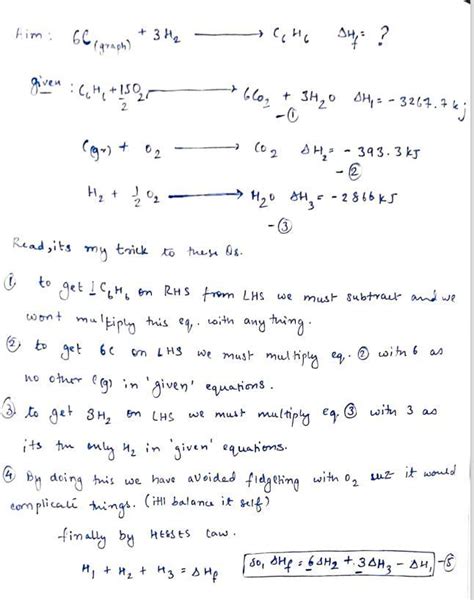 Aim: 6C(graph) + 3H2 ⟶ C6H6 ΔHf = ?
given: C6H6 + 15/2 O2 ⟶ 6CO2 + 3H2O ΔH1 = -3267.7kj
-①
C(gr) + O2 ⟶ CO2 ΔH2 = -393.3kJ
-②
H2 + 1/2 O2 ⟶ H2O ΔH3 = -2866kJ
-③
Read, its my trick to these Qs.
① to get 1 C6H6 on RHS from LHS we must subtract and we
wont multiply this eq. with any thing.
② to get 6C on LHS we must multiply eq. ② with 6 as
no other C(g) in 'given' equations.
③ to get 3H2 on LHS we must multiply eq. ③ with 3 as
its the only H2 in 'given' equations.
④ By doing this we have avoided fidgeting with O2 cuz it would
complicate things. (itll balance it self)
finally by HESSES law.
H1 + H2 + H3 = ΔHf so, ΔHf = 6ΔH2 + 3ΔH3 - ΔH1 -⑤